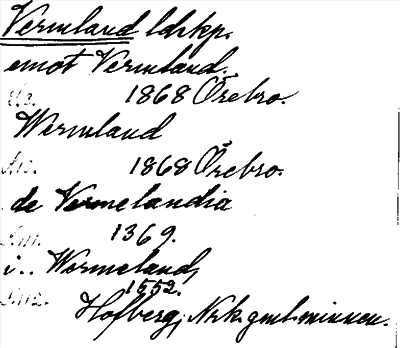 Vermland ldskp.
emot Vermland.
1868 Örebro.
Wermland
1868 Örebro.
de Vermelandia
1369.
i.. Wermeland,
1552.
Hofberg, Nrk. gml. minnen.